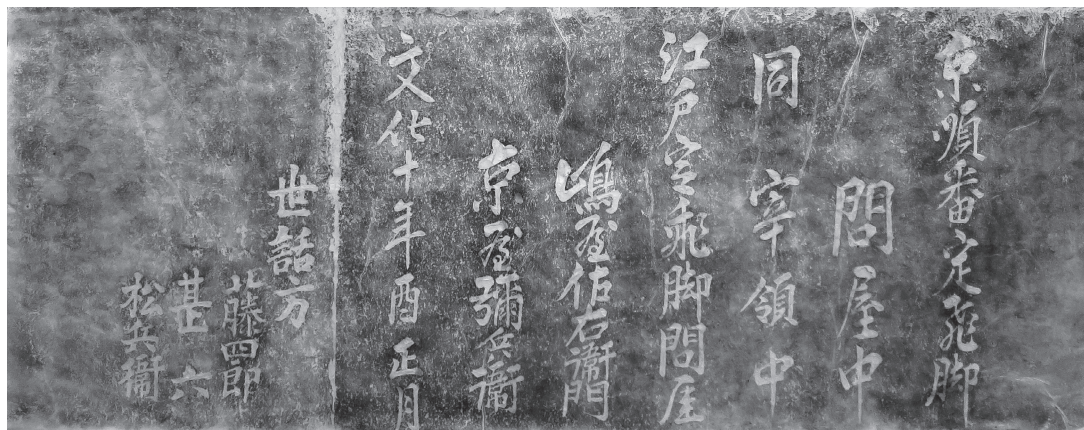 京順番定飛脚
問屋中
同宰領中
江戸定飛脚問屋
嶋屋佐右衛門
京屋彌兵衛
文化十年酉正月
世話方
藤四郎
甚六
松兵衛